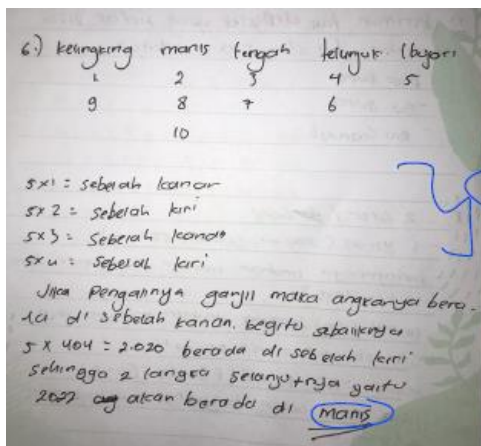 6.) kelingking manis tengah telunjuk ibujari
1 2 3 4 5
9 8 7 6
10
5x1 = sebelah kanan
5x2 = sebelah kiri
5x3 = sebelah kanan
5x4 = sebelah kiri
Jika pengalinya ganjil maka angkanya bera-
da di sebelah kanan. begitu sebaliknya
5 x 404 = 2.020 berada di sebelah kiri
sehingga 2 langka selanjutnya yaitu
2022 akan berada di manis